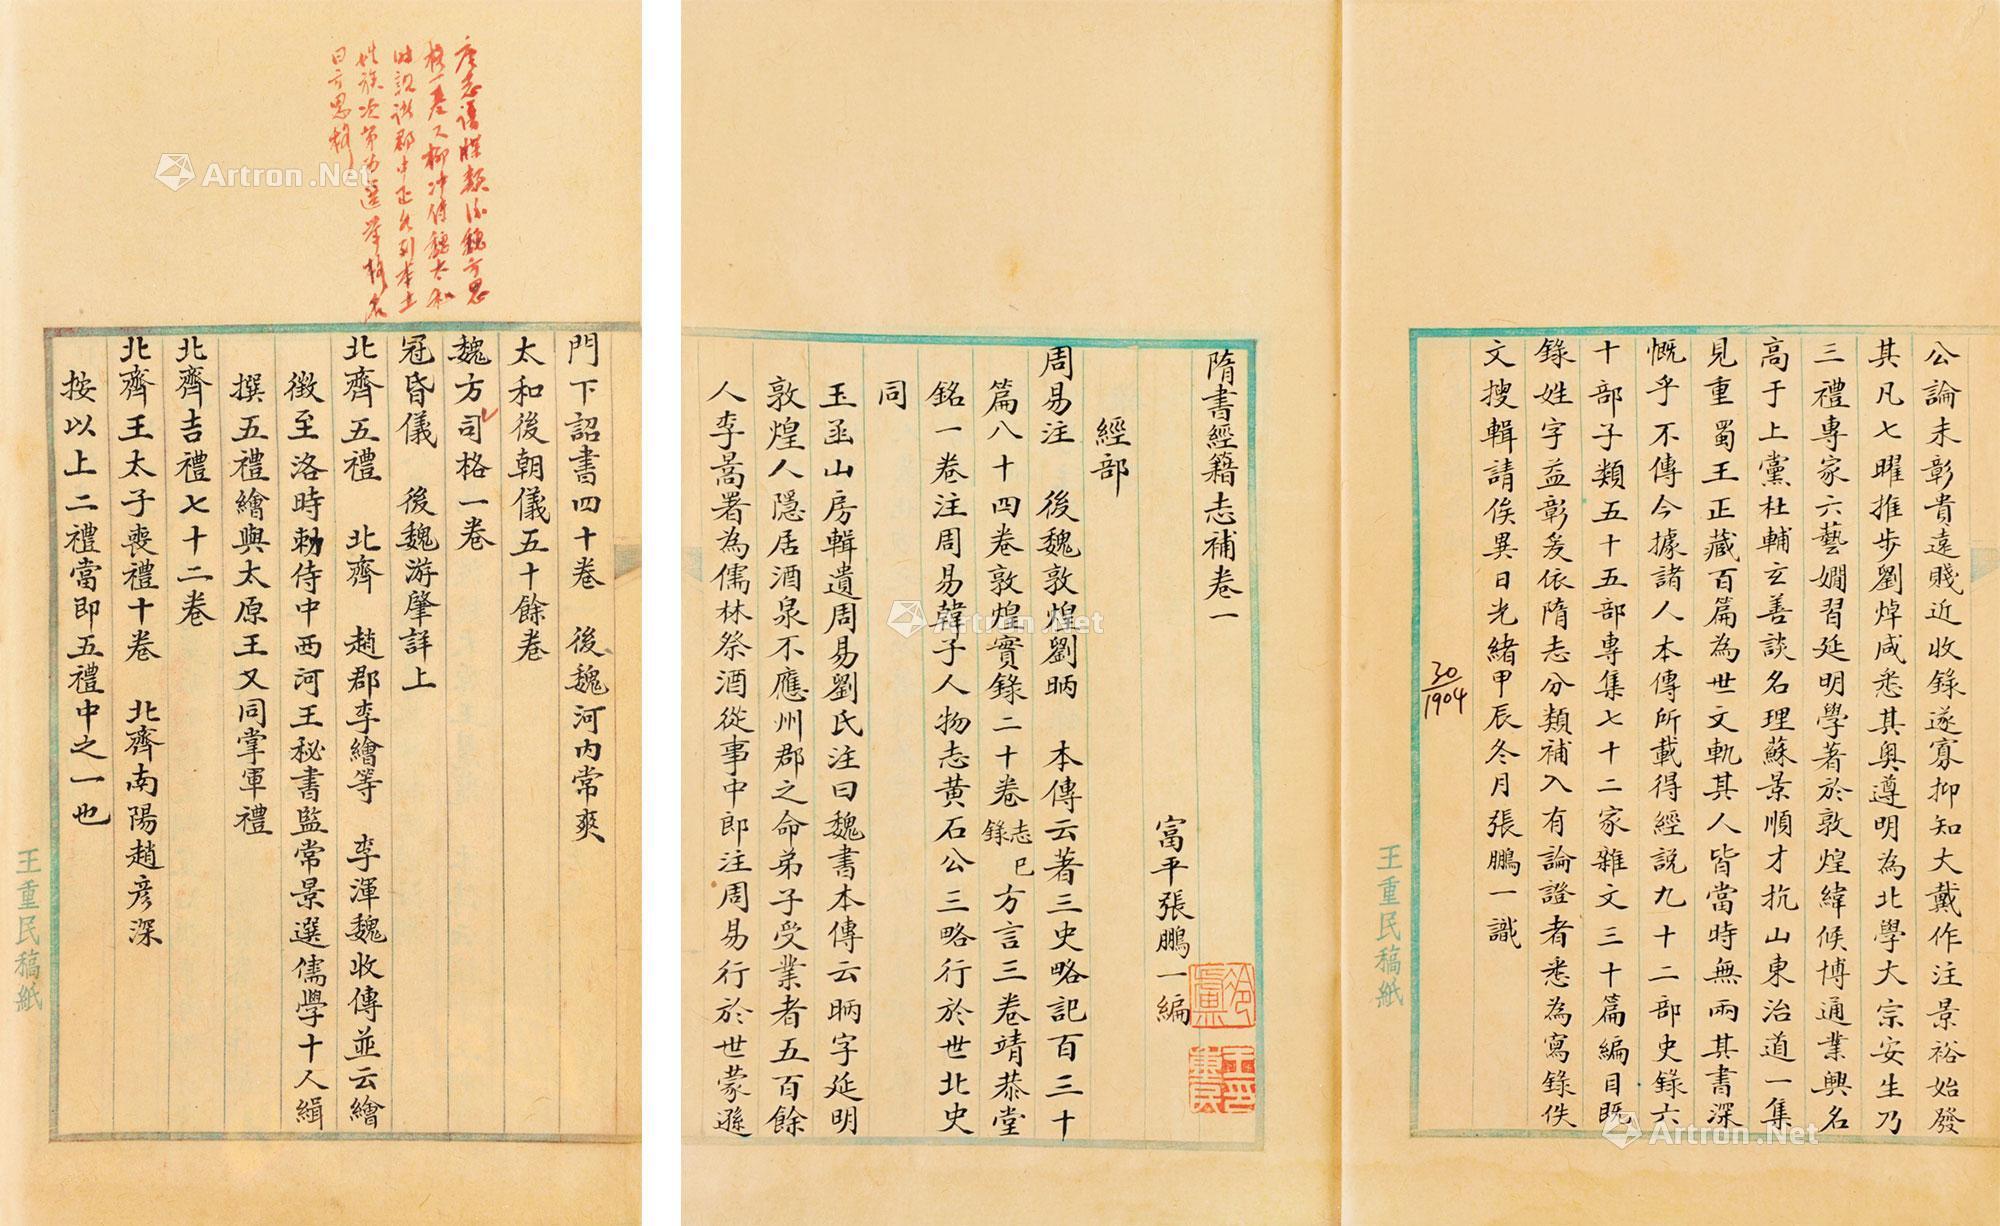 公論未彰貴遠賤近收錄遂寡抑知大戴作注景裕始發
其凡七曜推步劉焯咸悉其奧遵明為北學大宗安生乃
三禮專家六藝嫺習延明學著於敦煌緯候博通業興名
高于上黨杜輔玄善談名理蘇景順才抗山東治道一集
見重蜀王正藏百篇為世文軌其人皆當時無兩其書深
慨乎不傳今據諸人本傳所載得經說九十二部史錄六
十部子類五十五部專集七十二家雜文三十篇編目既
錄姓字益彰爰依隋志分類補入有論證者悉為寫錄佚
文搜輯請俟異日光緒甲辰冬月張鵬一識
30
1904
王重民稿紙
隋書經籍志補卷一
富平張鵬一編
經部
周易注 後魏敦煌劉昞 本傳云著三史略記百三十
篇八十四卷敦煌實錄二十卷志已錄方言三卷靖恭堂
銘一卷注周易韓子人物志黃石公三略行於世北史
同
玉函山房輯遺周易劉氏注曰魏書本傳云昞字延明
敦煌人隱居酒泉不應州郡之命弟子受業者五百餘
人李暠署為儒林祭酒從事中郎注周易行於世蒙遜
唐志譜牒類係魏方思
格一卷又柳沖傳魏太和
時詔諸郡中正各列本土
姓族次第為選舉格名
曰方思格
門下詔書四十卷 後魏河內常爽
太和後朝儀五十餘卷
魏方司格一卷
冠昏儀 後魏游肇詳上
北齊五禮 北齊 趙郡李繪等 李渾魏收傳並云繪
徵至洛時勅侍中西河王秘書監常景選儒學十人緝
撰五禮繪與太原王乂同掌軍禮
北齊吉禮七十二卷
北齊王太子喪禮十卷 北齊南陽趙彦深
按以上二禮當即五禮中之一也
王重民稿紙
Artron.Net
Artron.Net
Artron.Net